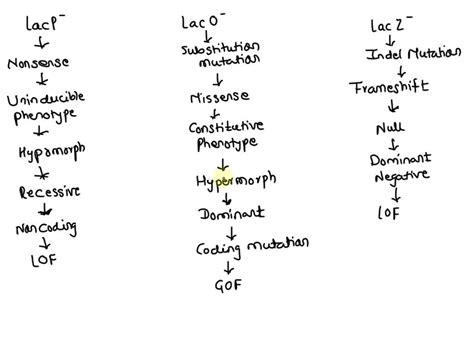 Lac P⁻
Nonsense
Uninducible
phenotype
Hypomorph
Recessive
Noncoding
LOF
Lac O⁻
Substitution
mutation
Missense
Constitutive
Phenotype
Hypermorph
Dominant
Coding mutation
GOF
Lac Z⁻
Indel Mutation
Frameshift
Null
Dominant
Negative
LOF